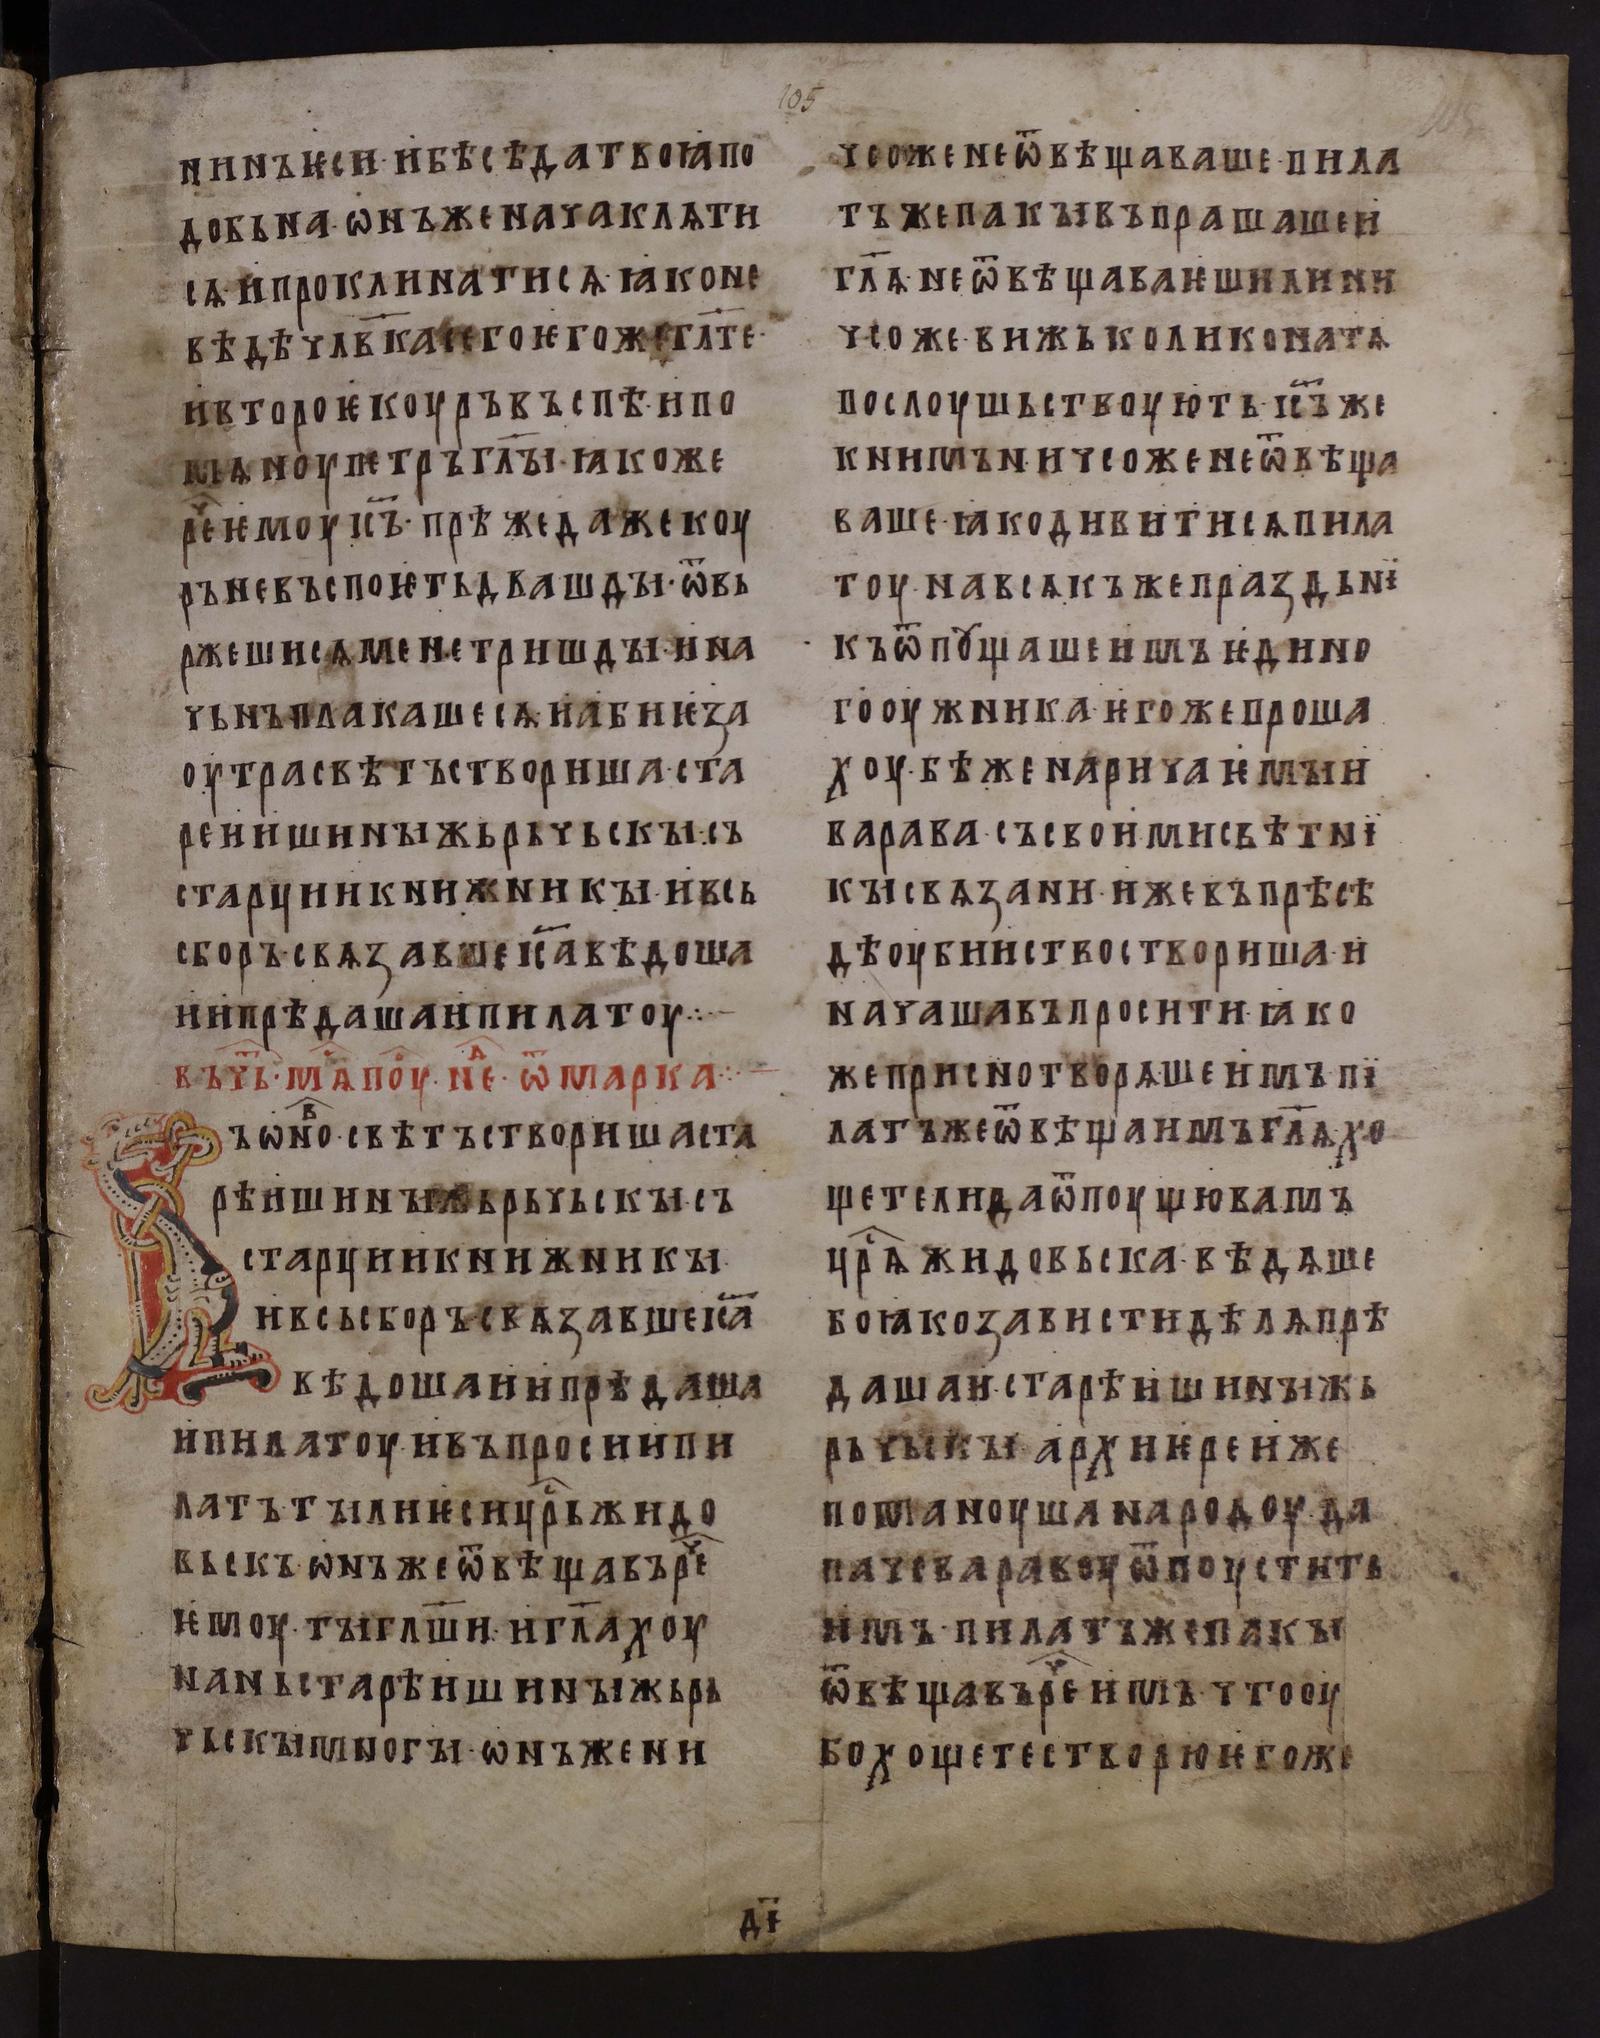 105
нинъѥси·ибѣсѣдатвоꙗпо
добьна·ѡнъженачаклѧти
сѧ·ипроклинатисѧ·ꙗконе
вѣдѣчл҃вкасегоѥгожегл҃те·
ивтороѥкоуръвъспѣ·ипо
мѧноупетръгл҃ы·ꙗкоже
реⷱ҇ѥмоуіс҃ъ·прѣжедажекоу
ръневъспоѥтьдвашды·ѿвь
ржешисѧменетришды·ина
чьнъплакашесѧ·иабиѥза
оутрасвѣтъствориша·ста
реишиныжьрьчьскы·съ
старциикнижникы·ивсь
сборъ·свѧзавшеіс҃аведоша
иипрѣдашаипилатоу·:–
въчт҃ь·мѧⷭ҇поⷭ҇у·неⷣ·ѿмарка·:–
Въѡноⷡ·свѣтъсотворишаста
рѣишиныжьрьчьскы·съ
старциикнижникы·
ивсьсборъсвѧзавшеіс҃а
вѣдошаиипрѣдаша
ипилатоу·ивъпросиипи
латъ·тылиѥсицрⷭ҇ьжидо
вьскъ·ѡнъжеѿвѣщавъреⷱ҇
ѥмоу·тыгл҃ши·игл҃ахоу
наньстарѣишиныжьрь
чьскымногы·ѡнъжени
чсоженеѿвѣщаваше·пила
тъжепакывъпрашашеи
гл҃ѧ·неѿвѣщаваѥшилини
чсоже·вижьколиконатѧ
послоушьствоують·іс҃ъже
книмън·ичсоженеѿвѣща
ваше·ꙗкодивитисѧпила
тоу·навсѧкъжепраздьнї
къѿпꙋщашеимъѥдино
гооужника·ѥгожепроша
хоу·бѣженаричаѥмыи
варава·съсвоимисвѣтнї
кысвѧзани·ижевъпрѣсѣ
дѣоубииствоствориша·и
начашавъпросити·ꙗко
жеприснотворѧшеимъпї
латъжеѿвѣщаимъгл҃ѧхо
щетелидаѿпоущювамъ
црⷭ҇ѧжидовьска·вѣдѧше
боꙗкозавистидѣлѧпрѣ
дашаи·старѣишиныжь
рьчьскы·архиѥреиже
поманоушанародоу·да
пачеваравоуѿпоустить
имъ·пилатъжепакы
ѿвѣщавъреⷱ҇имъ·чтооу
бохощетестворюѥгоже
д҃ї